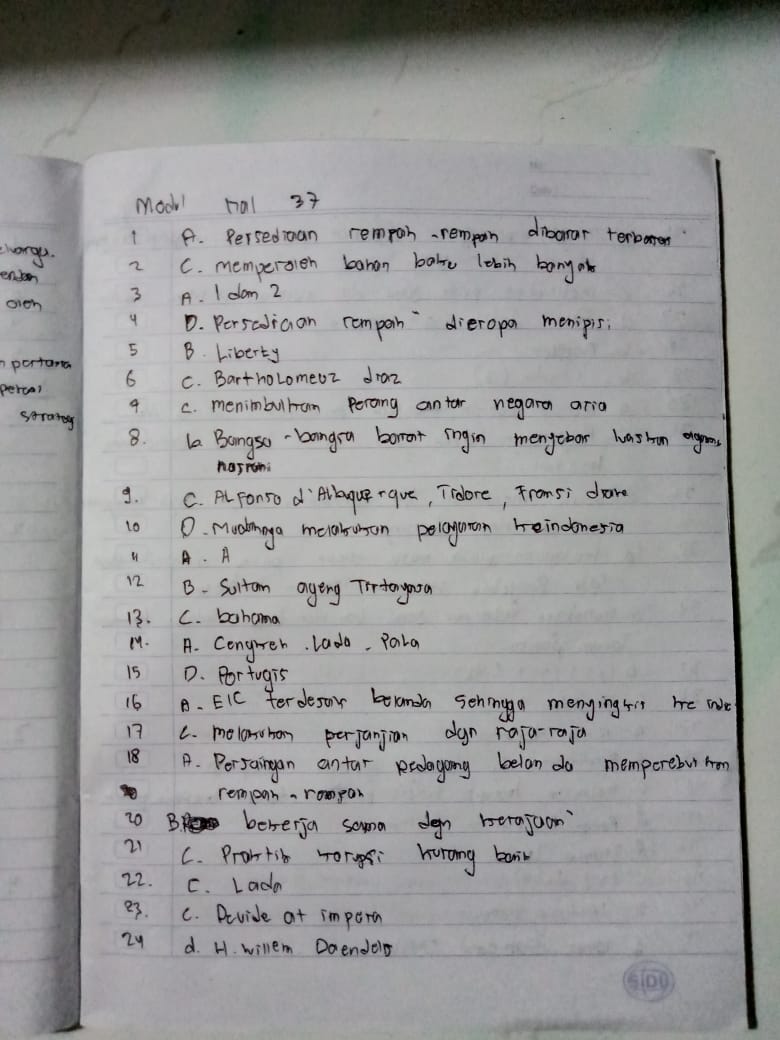 Modul hal 37
1 A. Persediaan rempah-rempah dibarat terbatas
2 C. memperoleh bahan baku lebih banyak
3 A. 1 dan 2
4 D. Persediaan rempah" dieropa menipis.
5 B. Liberty
6 C. Bartholomeuz diaz
7 c. menimbulkan perang antar negara asia
8. b. Bangsa-bangsa barat ingin menyebar luaskan agama
nasrani
9. C. ALfonso d'Albuquerque, Tidore, Fransi drave
10 D. Mudahnya melakukan pelayaran keindonesia
11 A. A
12 B. Sultan ageng Tirtayasa
13. C. bahama
14. A. Cengkeh. Lada. Pala
15 D. Portugis
16 A. EIC terdesak belanda sehingga menyingkir ke indo
17 C. melakukan perjanjian dgn raja-raja
18 A. Persaingan antar pedagang belanda memperebutkan
rempah-rempah
20 B. bekerja sama dgn kerajaan"
21 C. Praktik korupsi kurang baik
22. C. Lada
23. C. Devide at impera
24 d. H. willem Daendels
SIDU
chargu.
oleh
n pertama
strateg